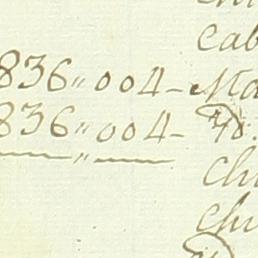 cab
836,,004-Ma
836,,004- Do.
chi
chi